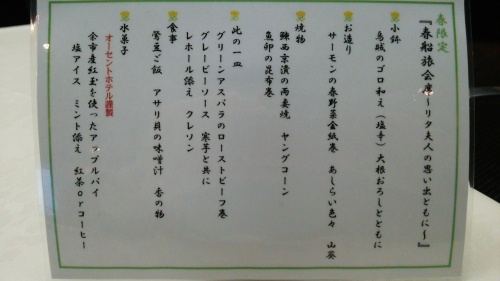 春限定
『春船旅会席～リタ夫人の思い出とともに～』
小鉢
烏賊のゴロ和え(塩辛)大根おろしとともに
お造り
サーモンの春野菜金紙巻 あしらい色々 山葵
焼物
鰊西京漬の両妻焼 ヤングコーン
魚卵の昆布巻
此の一皿
グリーンアスパラのローストビーフ巻
グレービーソース 寒芋と共に
レホール添え クレソン
食事
鶯豆ご飯 アサリ貝の味噌汁 香の物
水菓子
オーセントホテル謹製
余市産紅玉を使ったアップルパイ
塩アイス ミント添え 紅茶orコーヒー